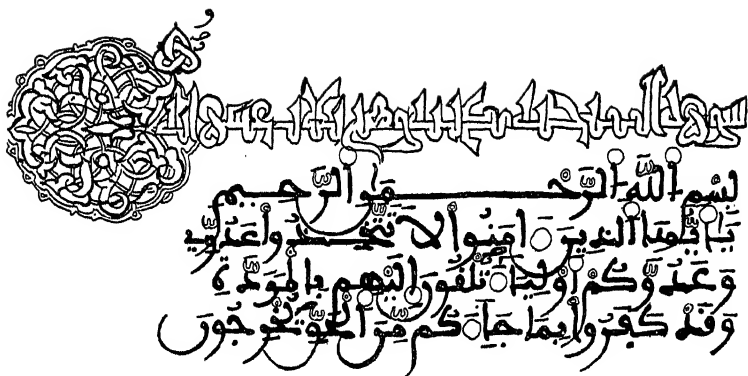 سورة الممتحنة وهي عشرة
بِسْمِ اللَّهِ الرَّحْمَٰنِ الرَّحِيمِ
يَٰأَيُّهَا الَّذِينَ ءَامَنُوا لَا تَتَّخِذُوا عَدُوِّي
وَعَدُوَّكُمْ أَوْلِيَاءَ تُلْقُونَ إِلَيْهِم بِالْمَوَدَّةِ
وَقَدْ كَفَرُوا بِمَا جَاءَكُم مِّنَ الْحَقِّ يُخْرِجُونَ